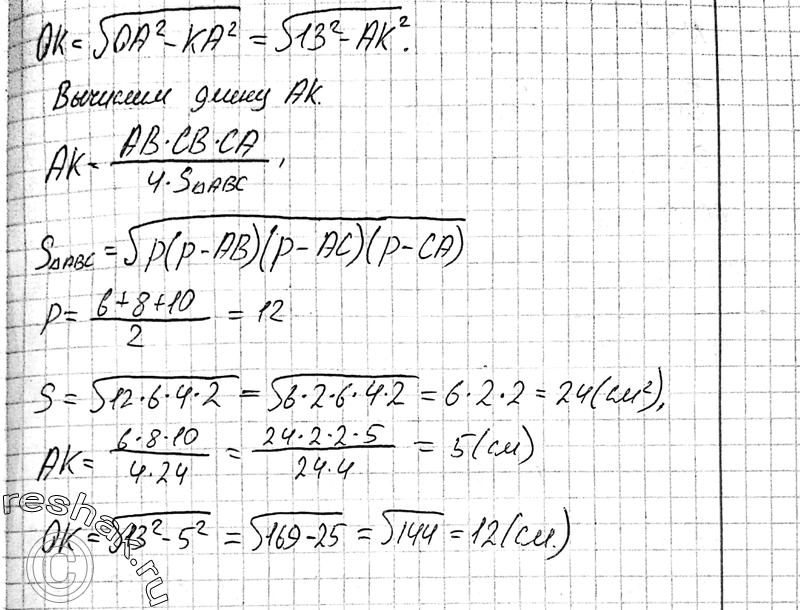 OK = √(OA² - KA²) = √(13² - AK²).
Вычислим длину AK.
AK = (AB · CB · CA) / (4 · S△ABC),
S△ABC = √(p(p - AB)(p - AC)(p - CA))
P = (6 + 8 + 10) / 2 = 12
S = √(12 · 6 · 4 · 2) = √(6 · 2 · 6 · 4 · 2) = 6 · 2 · 2 = 24 (см²),
AK = (6 · 8 · 10) / (4 · 24) = (24 · 2 · 2 · 5) / (24 · 4) = 5 (см)
OK = √(13² - 5²) = √(169 - 25) = √144 = 12 (см.)
reshak.ru
©